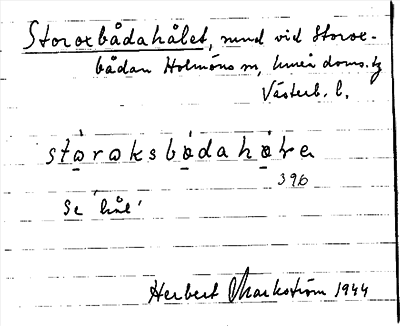 Storoxbådahålet, sund vid Storox-
bådan Holmöns sn, Umeå doms. tg
Västerb. l.
stòroksbådahåle
396
Se 'hål'
Herbert Markström 1944